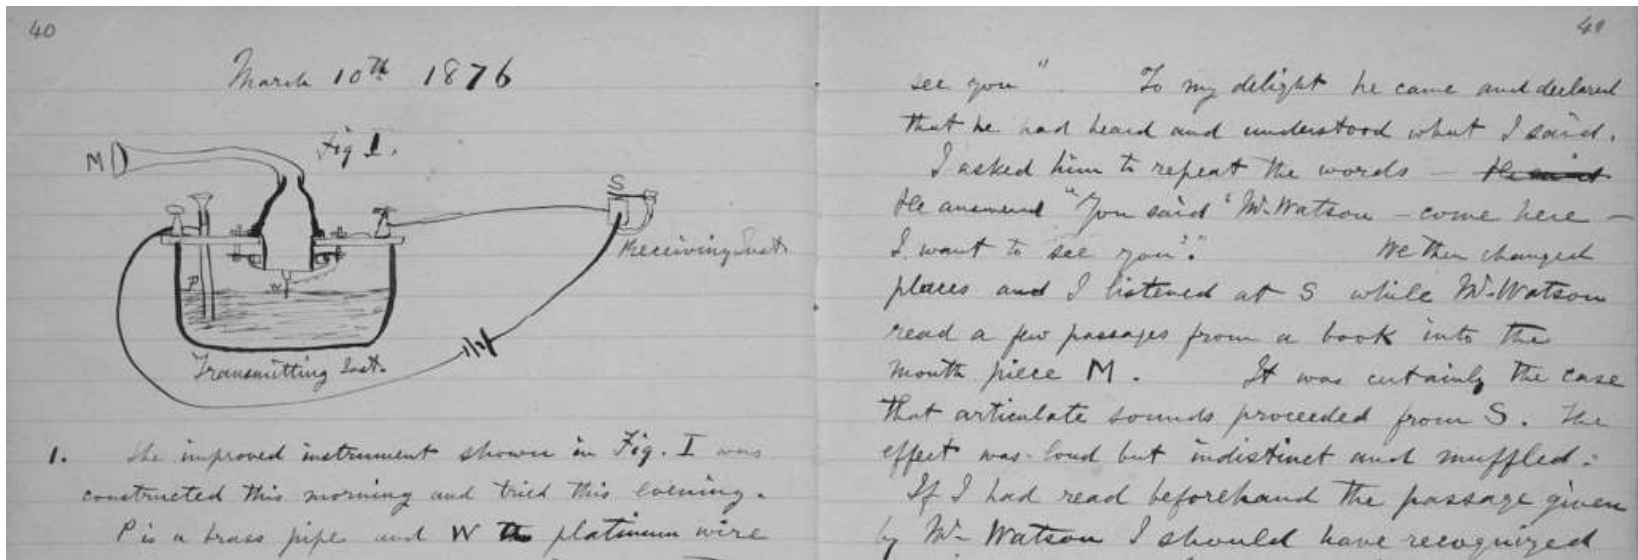 40
March 10th 1876
Fig 1.
M
S
Receiving Inst.
P
W
Transmitting Inst.
1. The improved instrument shown in Fig. I was
constructed this morning and tried this evening.
P is a brass pipe and W the platinum wire
41
see you". To my delight he came and declared
that he had heard and understood what I said.
I asked him to repeat the words — He said
He answered "You said 'Mr. Watson — come here —
I want to see you'." We then changed
places and I listened at S while Mr. Watson
read a few passages from a book into the
mouth piece M. It was certainly the case
that articulate sounds proceeded from S. The
effect was loud but indistinct and muffled.
If I had read beforehand the passage given
by Mr. Watson I should have recognized